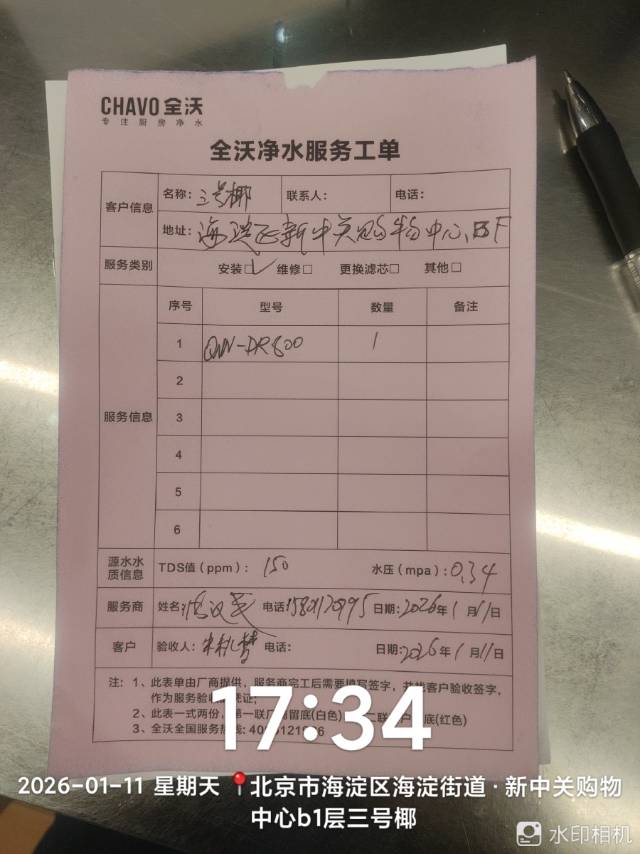 CHAVO 全沃
专注厨房净水
全沃净水服务工单
客户信息
名称：三号椰
联系人：
电话：
地址：海淀区新中关购物中心B1F
服务类别
安装☑ 维修□ 更换滤芯□ 其他□
服务信息
序号 型号 数量 备注
1 QW-DR800 1
2
3
4
5
6
源水水质信息
TDS值（ppm）：150 水压（mpa）：0.34
服务商 姓名： 电话： 日期：2026年1月11日
客户 验收人： 电话： 日期：2026年1月11日
注：1、此表单由厂商提供，服务商完工后需要填写签字，并找客户验收签字，
作为服务验收 凭证；
2、此表一式两份，第一联厂商留底(白色) 二联 户 底(红色)
3、全沃全国服务热线：
17:34
2026-01-11 星期天 北京市海淀区海淀街道·新中关购物
中心b1层三号椰
水印相机